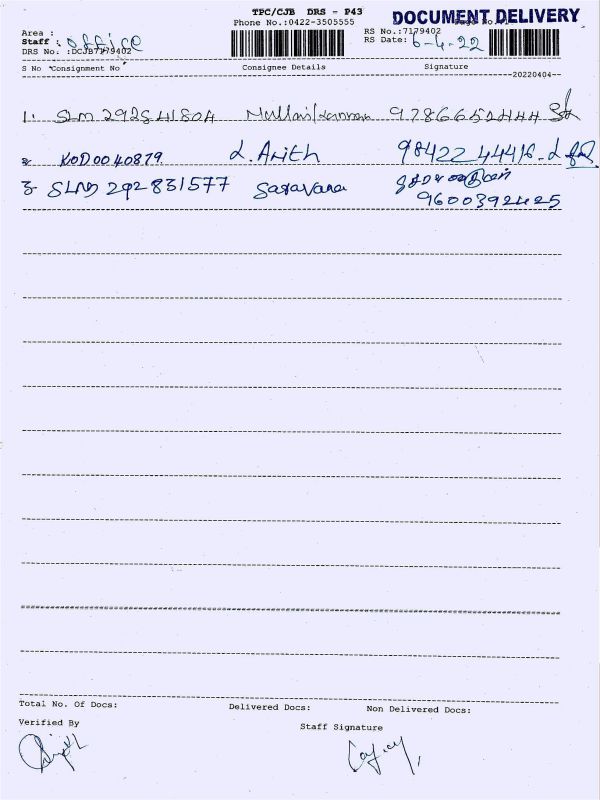 TPC/CJB DRS - P43
DOCUMENT DELIVERY
Phone No.:0422-3505555
Area :
RS No.:7179402
Staff : office
RS Date: 6-4-22
DRS No: :DCJB7179402
S No Consignment No Consignee Details Signature
20220404
1. Mullai
2. KOD0040879 L. Arith 98422 44416
3. SLM 292831577 Saravana
9600392425
Total No. Of Docs: Delivered Docs: Non Delivered Docs:
Verified By
Staff Signature